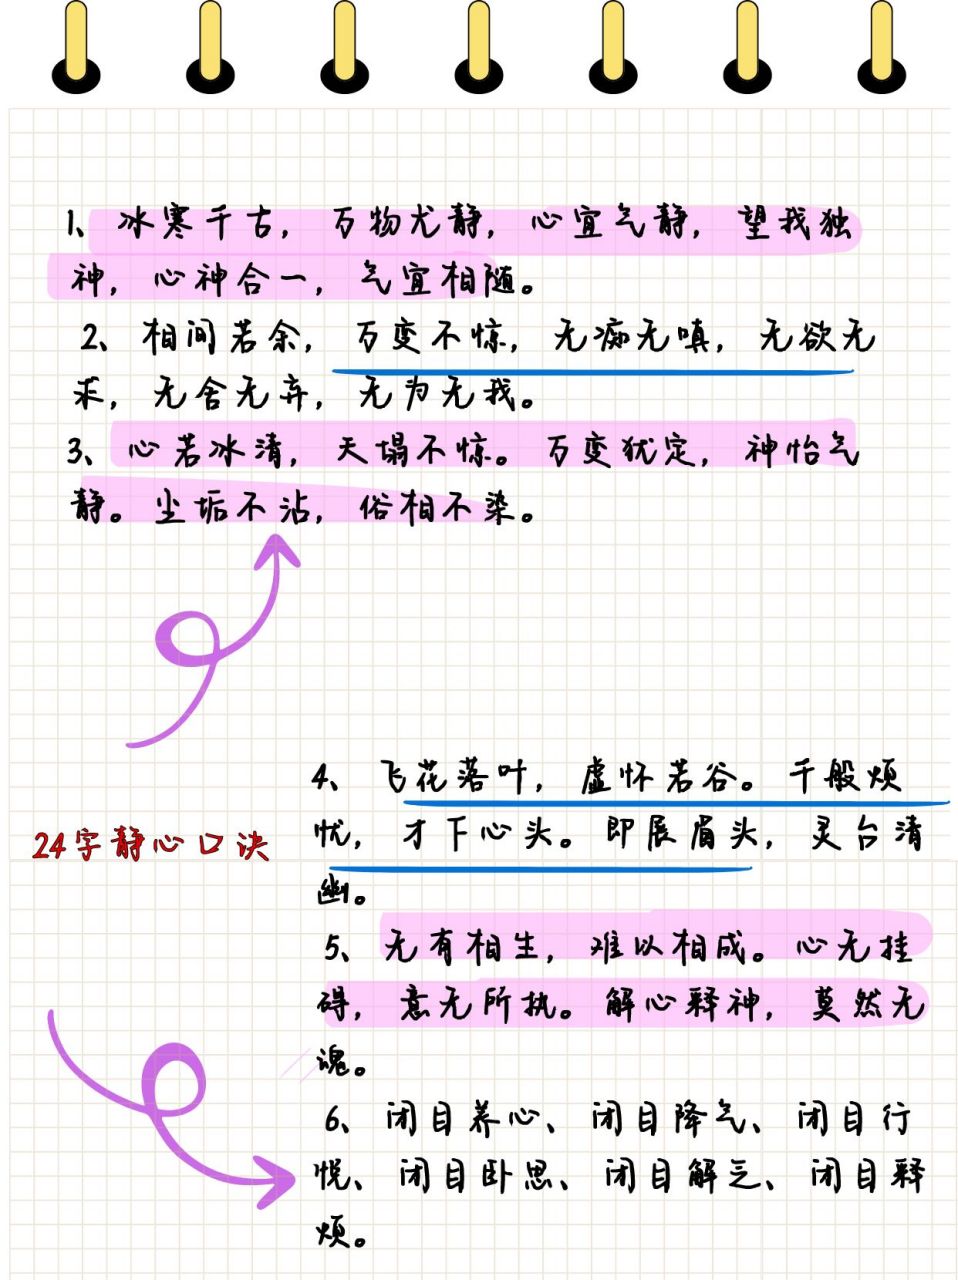 1、冰寒千古，万物尤静，心宜气静，望我独
神，心神合一，气宜相随。
2、相间若余，万变不惊，无痴无嗔，无欲无
求，无舍无弃，无为无我。
3、心若冰清，天塌不惊。万变犹定，神怡气
静。尘垢不沾，俗相不染。
24字静心口诀
4、飞花落叶，虚怀若谷。千般烦
忧，才下心头。即展眉头，灵台清
幽。
5、无有相生，难以相成。心无挂
碍，意无所执。解心释神，莫然无
魂。
6、闭目养心、闭目降气、闭目行
悦、闭目卧思、闭目解乏、闭目释
烦。